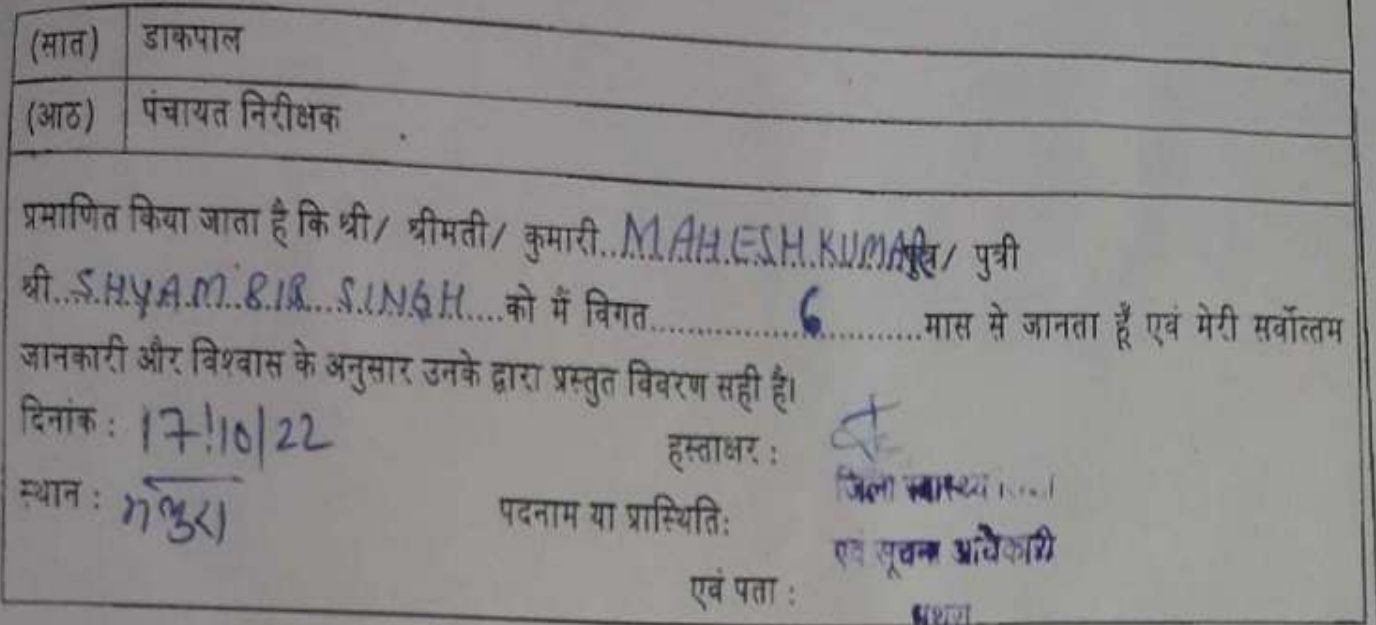 (सात) डाकपाल
(आठ) पंचायत निरीक्षक
प्रमाणित किया जाता है कि श्री/ श्रीमती/ कुमारी..MAHESH.KUMAR पुत्र/ पुत्री
श्री..SHYAM.BIR..SINGH....को में विगत..................6..............मास से जानता हूँ एवं मेरी सर्वोत्तम
जानकारी और विश्वास के अनुसार उनके द्वारा प्रस्तुत विवरण सही है।
दिनांक : 17/10/22 हस्ताक्षर :
स्थान : मथुरा पदनाम या प्रास्थिति: जिला स्वास्थ्य
एवं सूचना अधिकारी
एवं पता : मथुरा